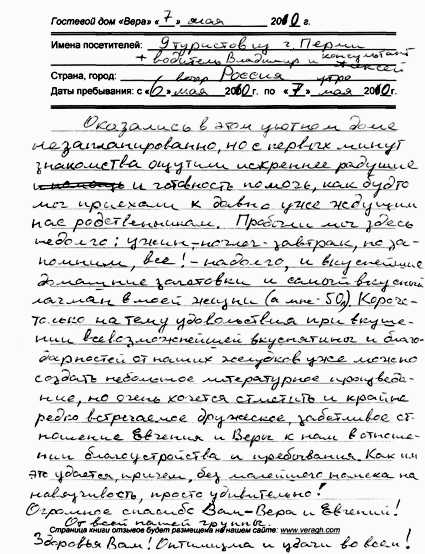 Гостевой дом «Вера» «7» мая 2010 г.
Имена посетителей: 9 туристов из г. Перми
+ водитель Владимир и консультант Алексей
Страна, город: Россия
вечер утро
Даты пребывания: с «6» мая 2010г. по «7» мая 2010г.
Оказались в этом уютном доме
незапланированно, но с первых минут
знакомства ощутили искреннее радушие
и готовность помочь, как будто
мы приехали к давно уже ждущим
нас родственникам. Пробыли мы здесь
недолго: ужин-ночлег-завтрак, но за-
помним, все! - надолго, и вкуснейшие
домашние заготовки и самый вкусный
лагман в моей жизни (а мне-50л.) Короче-
только на тему удовольствия при вкуше-
нии всевозможнейшей вкуснятины и благо-
дарностей от наших желудков уже можно
создать небольшое литературное произведе-
ние, но очень хочется отметить и крайне
редко встречаемое дружеское, заботливое от-
ношение Евгения и Веры к нам в отноше-
нии благоустройства и пребывания. Как им
это удается, причем, без малейшего намека на
навязчивость, просто удивительно!
Огромное спасибо Вам-Вера и Евгений!
От всей нашей группы.
Страница книги отзывов будет размещена на нашем сайте: www.veragh.com
Здоровья Вам! Оптимизма и удачи во всем!